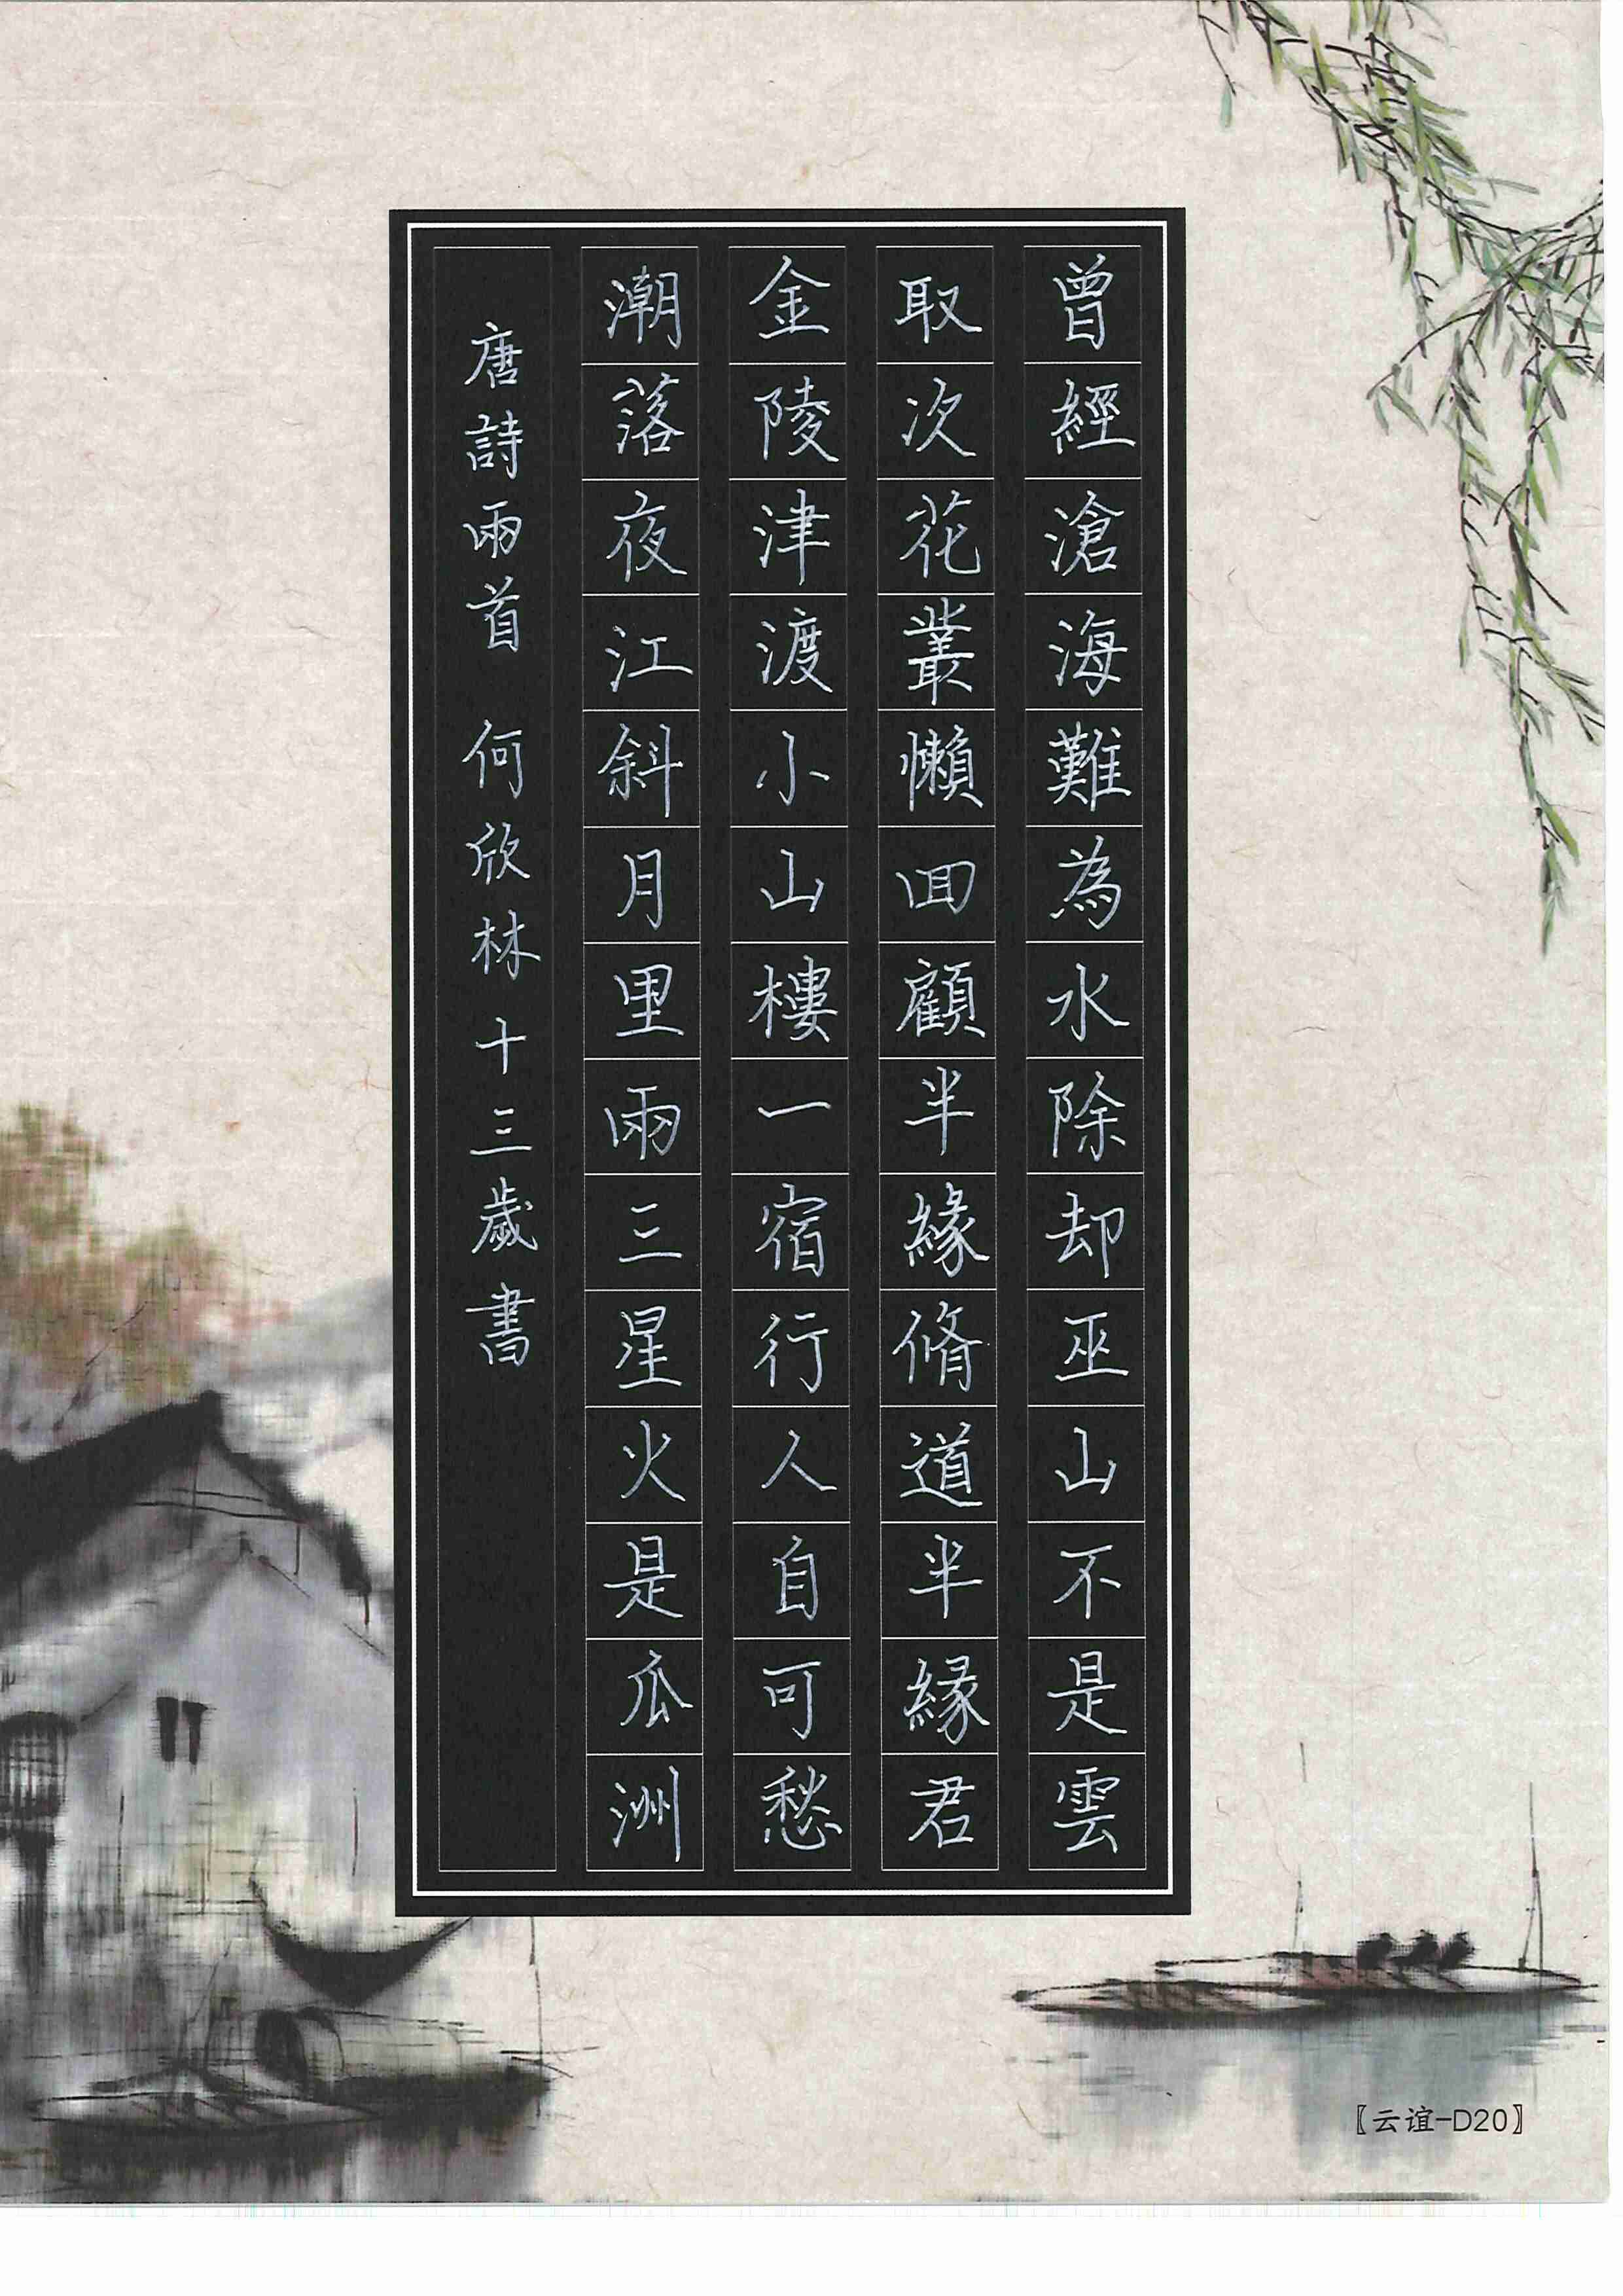 曾經滄海難為水除却巫山不是雲
取次花叢懶回顧半緣脩道半緣君
金陵津渡小山樓一宿行人自可愁
潮落夜江斜月里兩三星火是瓜洲
唐詩兩首 何欣林十三歲書
〖云谊-D20〗